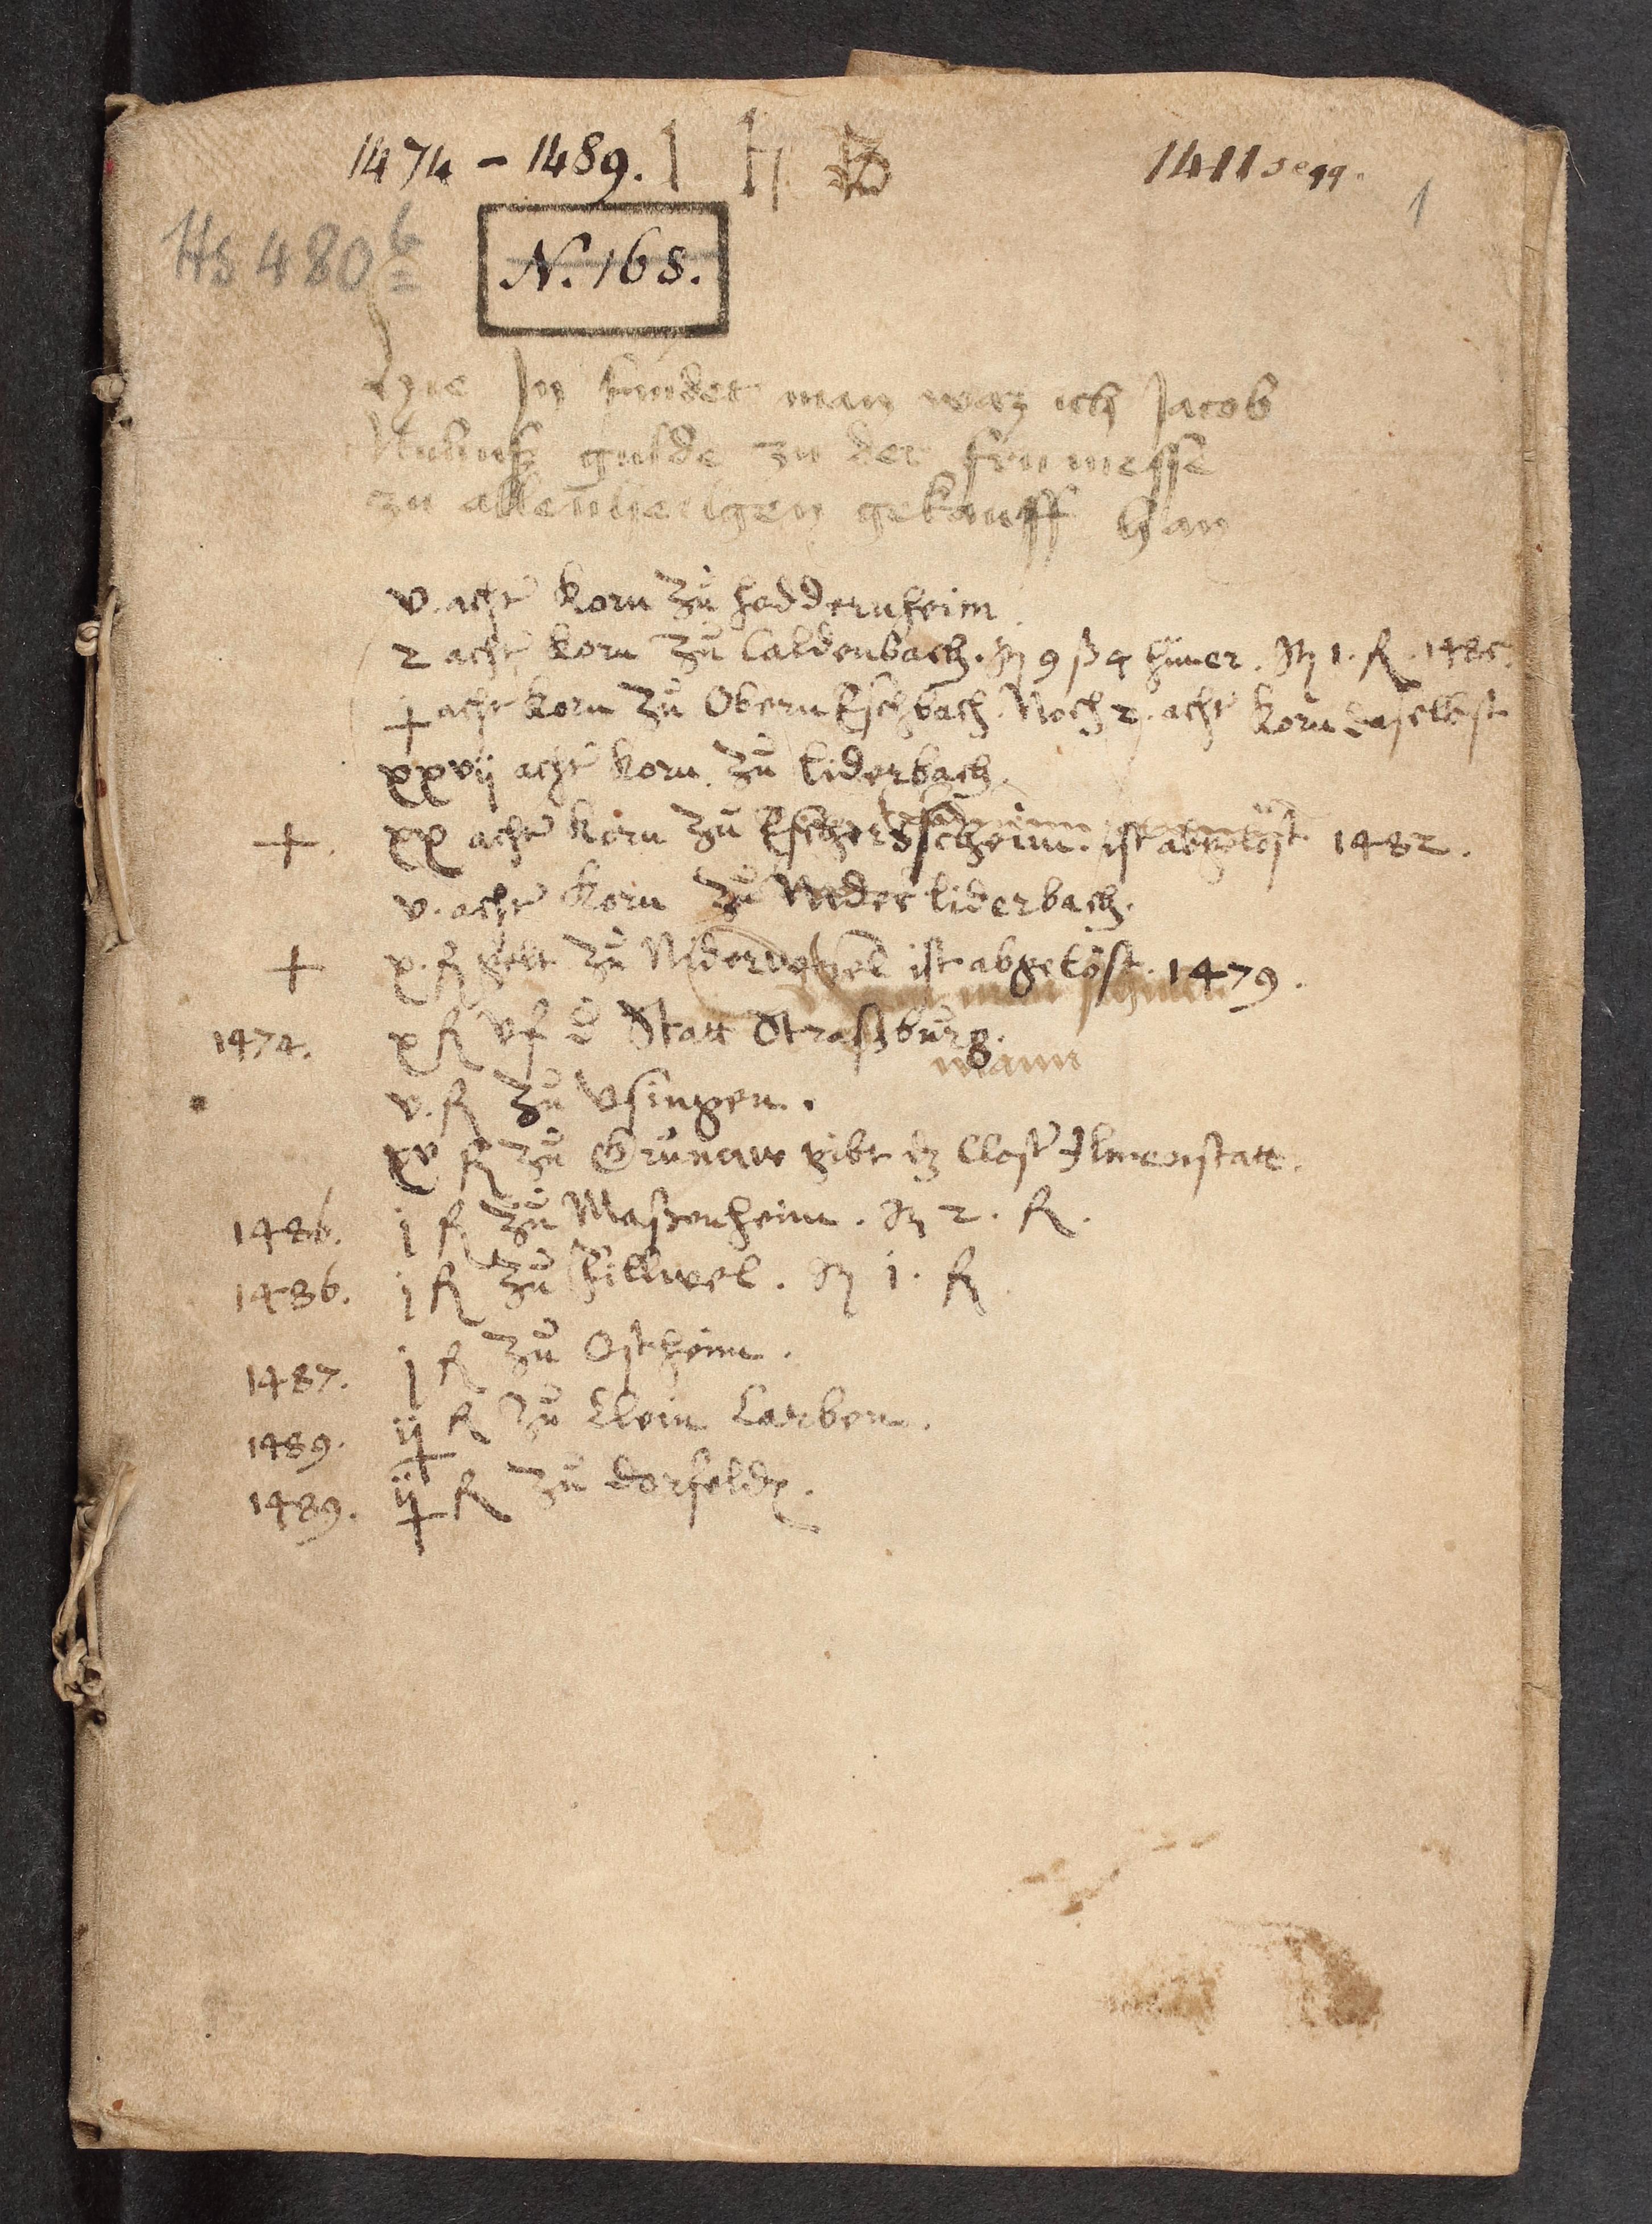 1474 - 1489. 1 H B 1411 seqq.
1
Hs 480 b
N. 168.
Hie Jn findet man waz ich Jacob
gulde zu der fru messe
zu allenheilgen gekaufft han
v. acht korn zů Heddernheim
2 acht korn zů Caldenbach. Jt 9 ß 4 hüner. Jt 1. fl. 1485.
x acht korn zů Obern Eschbach. Noch 2. acht korn daselbst
xxvij acht korn zů liderbach.
+. xx acht korn zů Eschersscheim. ist abgelöst 1482.
v. acht korn zů Nider liderbach.
+ x. fl gelt zů Nider ist abgelöst. 1479.
1474. x fl vf d Statt Straßburg.
mann
v. fl zů Vsingen.
xv fl zů Grunaw gibt dz Closter Ilmenstatt.
1486. j fl zů Maßenheim. Jt 2. fl.
1486. j fl zů hillwel. Jt 1. fl
1487. j fl zů Ostheim.
1489. ij fl zů Clein Carben.
1489. ij fl zů dorfelde.